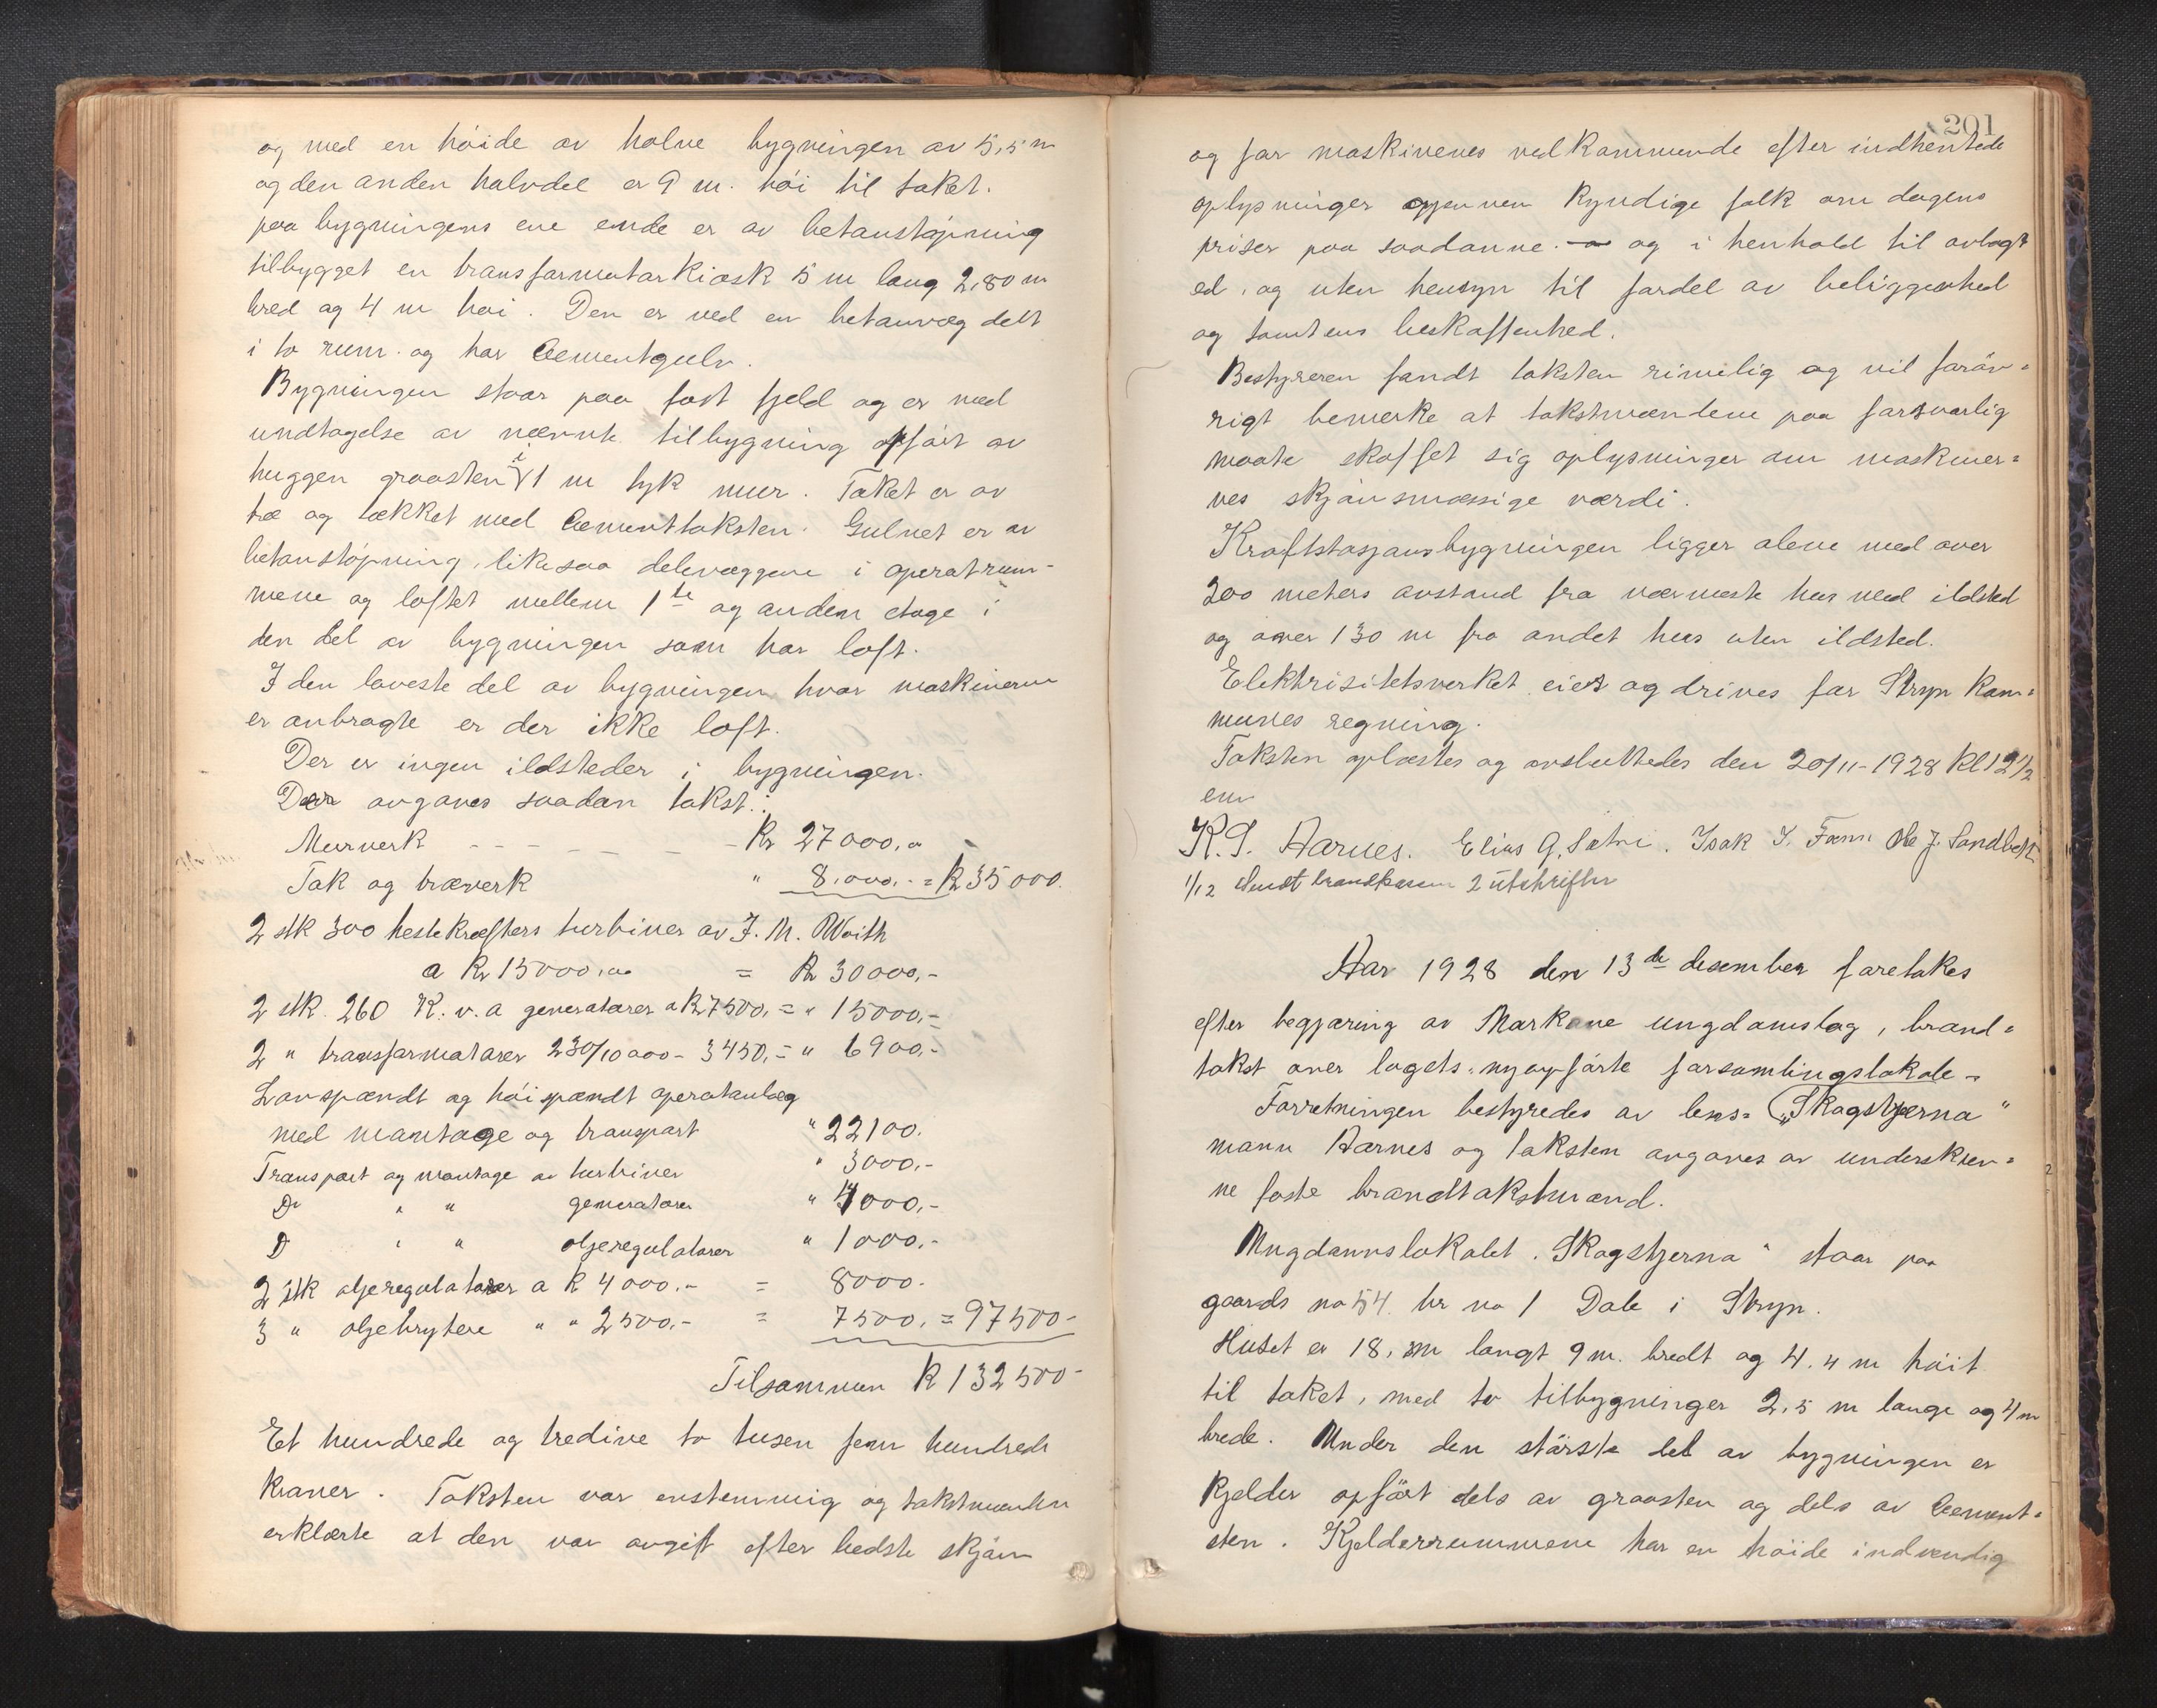 og med en høide av halve bygningen av 5,5 m
og den anden halvdel er 9 m. høi til taket.
paa bygningens ene ende er av betonstøpning
tilbygget en transformatorkiosk 5 m lang 2,80 m
bred og 4 m høi. Den er ved en betonvæg delt
i to rum og har Cementgulv.
Bygningen staar paa fast fjeld og er med
undtagelse av nævnte tilbygning opført av
huggen graasten i 1 m tyk mur. Taket er av
træ og tækket med Cementtaksten. Gulvet er av
betonstøpning, likesaa delevæggene i operatrum-
mene og loftet mellem 1ste og anden etage i
den del av bygningen som har loft.
I den laveste del av bygningen hvor maskinerne
er anbragte er der ikke loft.
Der er ingen ildsteder i bygningen.
Der avgaves saadan takst:
Murverk - - - - - - Kr 27000,00
Tak og træverk " 8.000,- = Kr 35000.
2 stk 300 hestekræfters turbiner av J. M. Woith
a Kr 15000,00 = Kr 30000,-
2 stk. 260 K. v. a generatorer a Kr 7500,- = " 15000,-
2 " transformatorer 230/10000 - 3450,- = " 6900,-
Lavspændt og høispændt operatanlæg
med montage og transport " 22100.
Transport og montage av turbiner " 3000,-
Do " " generatorer " 4000,-
D " " oljeregulatorer " 1000,-
2 stk oljeregulatorer a K 4000.- = 8000.
3 " oljebrytere " " 2500,- = 7500, = 97500-
Tilsammen K 132500-
Et hundrede og tredive to tusen fem hundrede
Kroner. Taksten var enstemmig og takstmænden
erklærte at den var avgit efter bedste skjøn
201
og for maskinenes vedkommende efter indhentede
oplysninger gjennem kyndige folk om dagens
priser paa saadanne. og i henhold til avlagt
ed, og uten hensyn til fordel av beliggenhed
og tomtens beskaffenhed.
Bestyreren fandt taksten rimelig og vil forøv=
rigt bemerke at takstmændene paa forsvarlig
maate skaffet sig oplysninger om maskiner=
nes skjønsmæssige værdi.
Kraftstasjonsbygningen ligger alene med over
200 meters avstand fra nærmeste hus med ildsted
og over 130 m fra andet hus uten ildsted.
Elektrisitetsverket eies og drives for Stryn Kom=
munes regning.
Taksten oplæstes og avsluttedes den 20/11-1928 Kl 12 1/2
em
K. S. Aarnes. Elias G. Sætre. Isak I. Fænn Ole J. Sandbekk
1/12 Sendt brandkassen 2 utskrifter
Aar 1928 den 13de desember foretakes
efter begjæring av Markane ungdomslag, brand=
takst over lagets nyopførte forsamlingslokale -
Forretningen bestyredes av lens= „Skogstjerna"
mann Aarnes og taksten avgaves av underskrev=
ne faste brandtakstmænd.
Ungdomslokalet „Skogstjerna" staar paa
gaards no 54 br no 1 Dale i Stryn.
Huset er 18, m langt 9 m. bredt og 4.4 m høit
til taket, med to tilbygninger 2,5 m lange og 4 m
brede. Under den største del av bygningen er
Kjelder opført dels av graasten og dels av Cement=
sten. Kjelderrummene har en høide indvendig